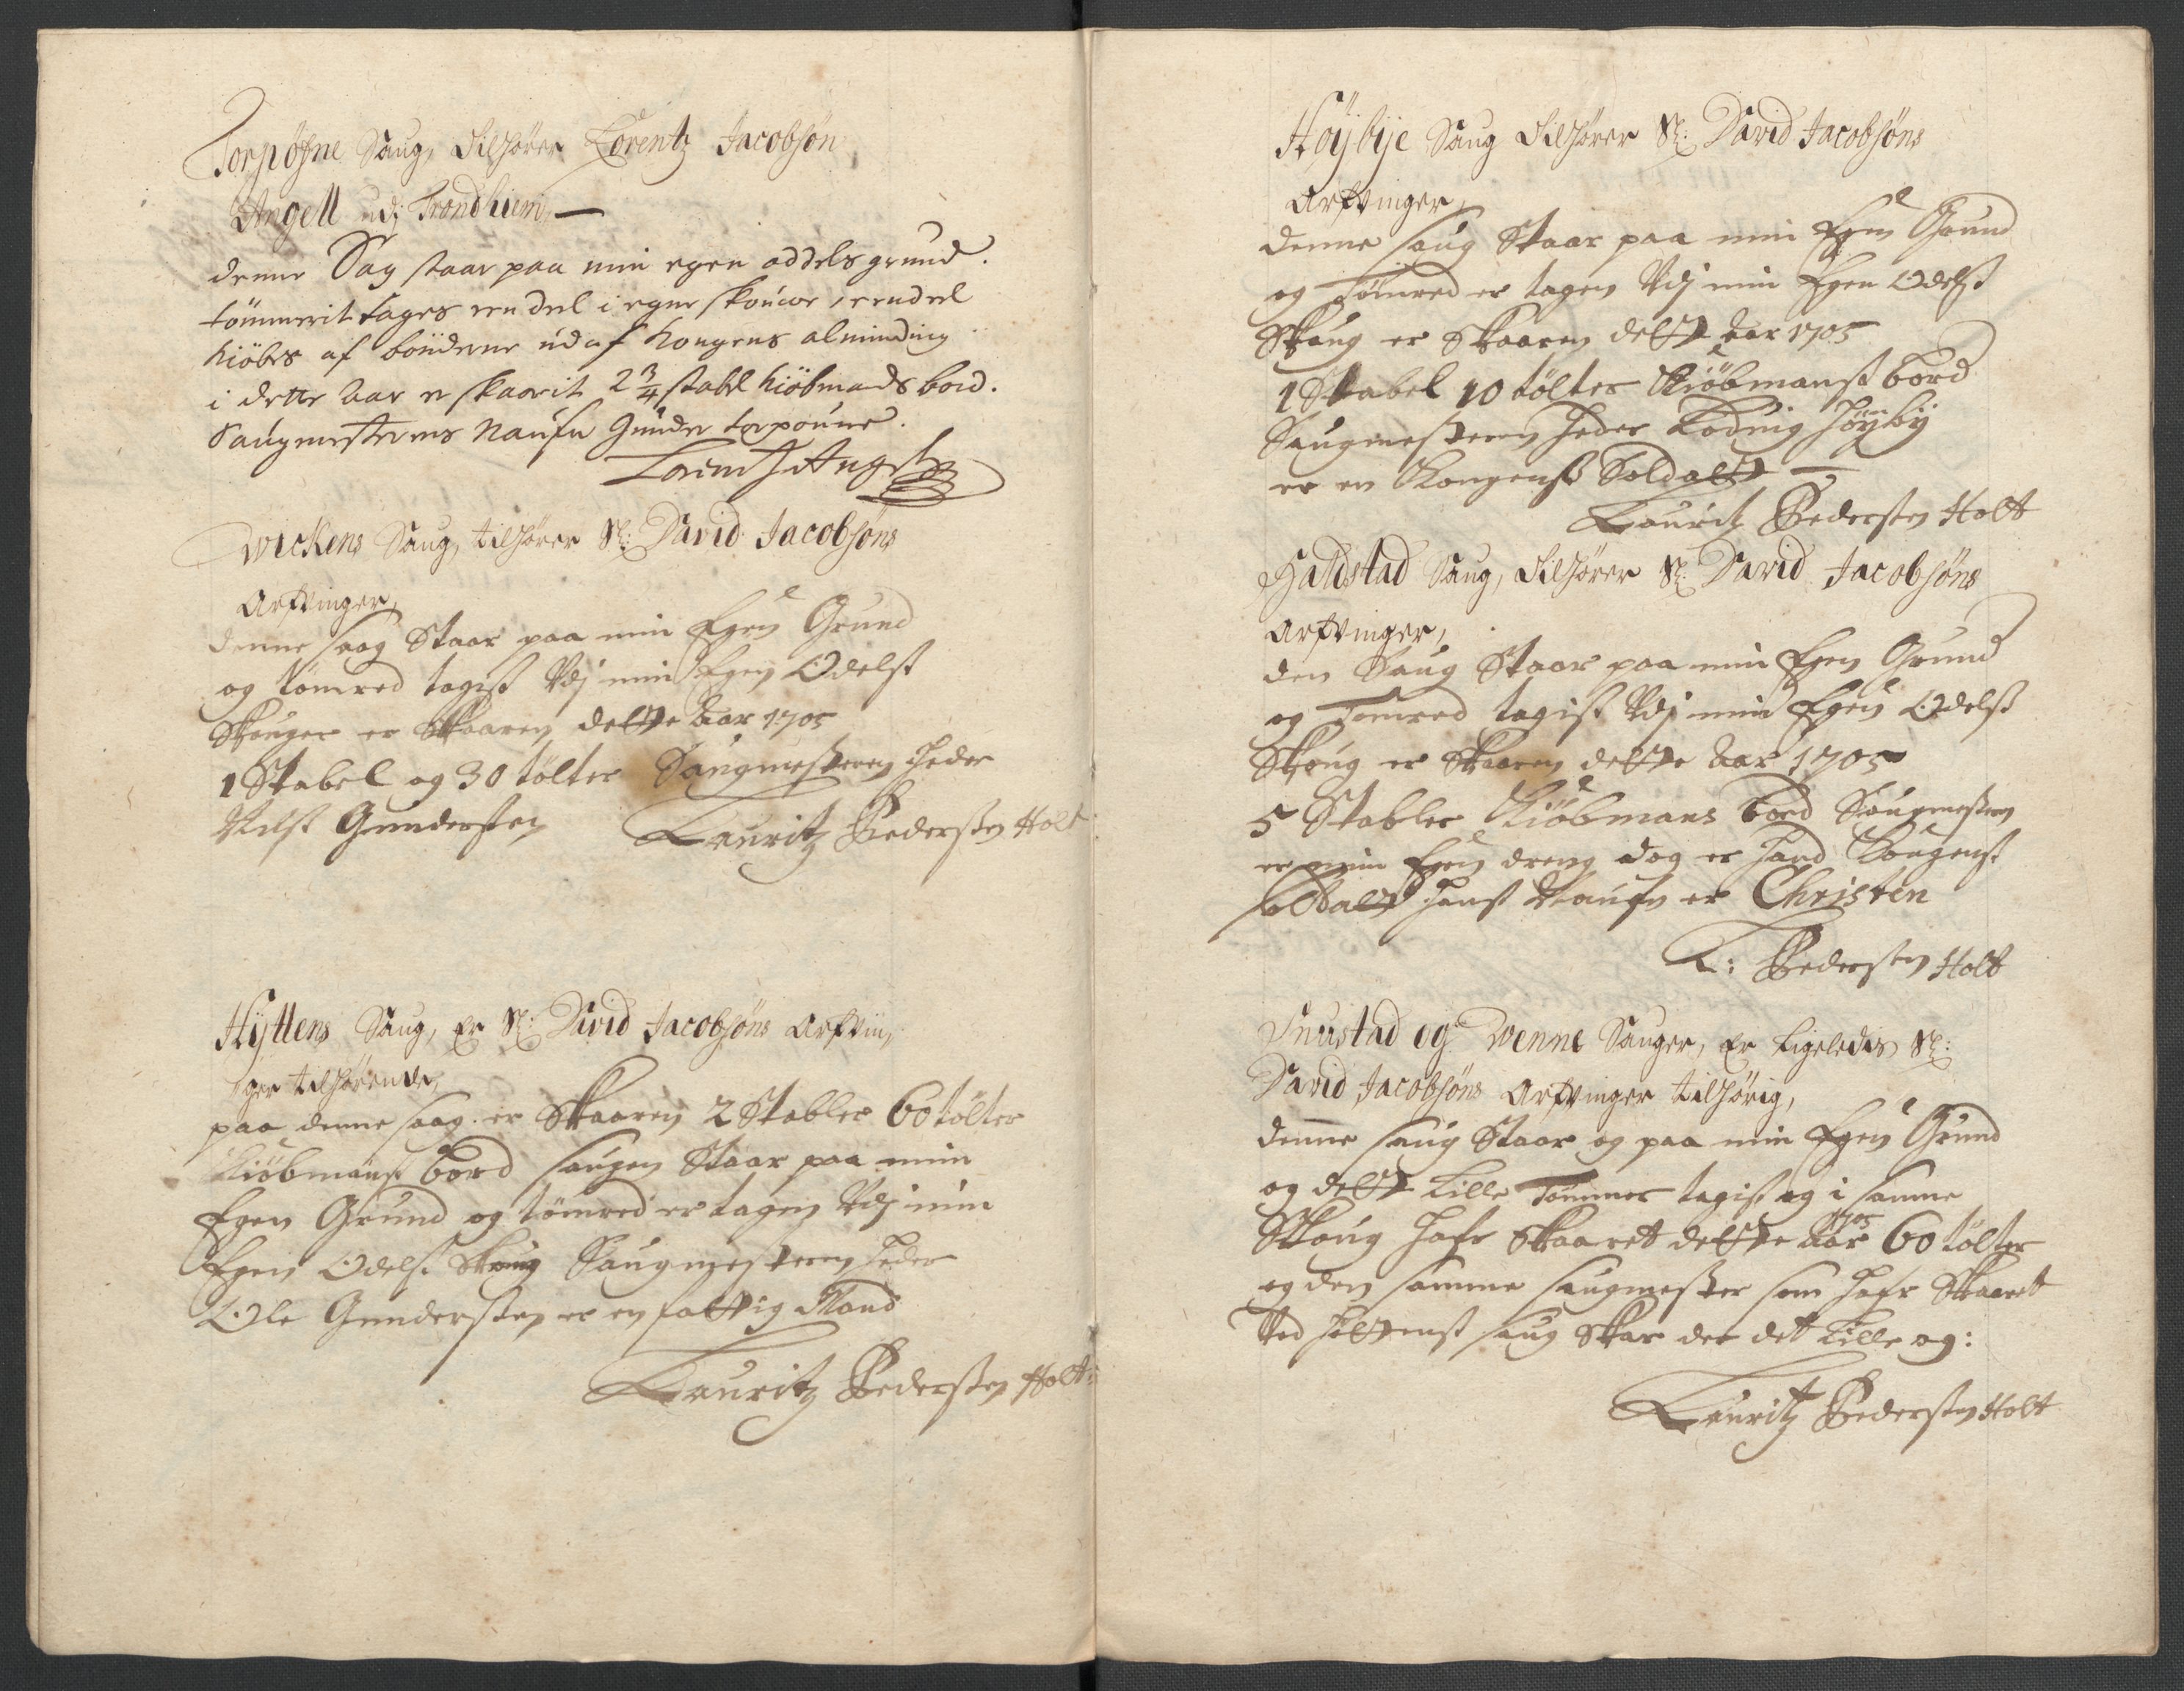 Torpøfne Saug, tilhører Lorentz Jacobsøn
Angell udj Trondhiem, —
denne Sag staar paa min egen oddels grund.
tömmerit tages een deel i egne skouwe, eendeel
kiöbes af böndene ud af Kongens alminding
i dette aar er skaarit 2 3/4 stabl kiöbmands bord.
Saugmesterens naufn Gunder torpoune.
Lorentz Angel
Wickens Saug, tilhører Sl: David Jacobsøns
Arfvinger,
denne saag Staar paa min Egen Grund
og tømred tagist Udj min Egen Odelst
Skouger er Skaaren dette aar 1705
1 Stabel og 30 tölter Saugmesteren heder
Nilst Gundersten Lauritz Pedersten Holt
Hyttens Saug, Er Sl: David Jacobsøns Arfvin,
ger tilhørende,
paa denne saag er Skaaren 2 Stabler 60 tölter
Kiöbmanst bord saugen Staar paa min
Egen Grund og tömred er tagen Udj min
Egen Odelst Skoug Saugmesteren heder
Ole Gundersten er en fattig Mand
Lauritz Pedersten Holt:
Höybye Saug tilhører Sl: David Jacobsøns
Arfvinger,
denne saug Staar paa min Egen Grund
og Tömred er tagen Udj min Egen Odelst
Skoug er Skaaren dette aar 1705
1 Stabel 10 töltes Kiöbmanst bord
Saugmesteren heder Lodvig Höyby
er en Kongenst Soldatt —
Lauritz Pedersten Holt
Haldstad Saug, tilhører Sl: David Jacobsøns
Arfvinger,
den Saug Staar paa min Egen Grund
og Tømred tagist Udj min Egen Odelst
Skoug er Skaaren dette aar 1705
5 Stabler Kiöbmans bord Saugmesteren
er min Egen dreng dog er hand Kongenst
soldatt hanst Naufn er Christen
L: Pedersten Holt
Snustad og Wenne Sauger, Er Ligeledes Sl:
David Jacobsøns Arfvinger tilhørig,
denne saug Staar og paa min Egen Grund
og dette Lille Tømmer tagist og i samme
Skoug hafr Skaaret dette aar 1705 60 tölter
og den samme saugmester som hafr Skaaret
Ved høttenst saug Skar der det Lille og:
Lauritz Pedersten Holt